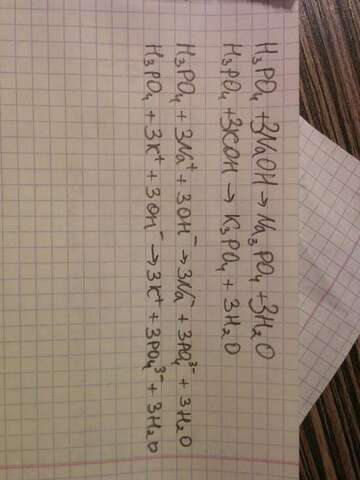 H₃PO₄ + 3NaOH → Na₃PO₄ + 3H₂O
H₃PO₄ + 3KOH → K₃PO₄ + 3H₂O
H₃PO₄ + 3Na⁺ + 3OH⁻ → 3Na⁻ + 3PO₄³⁻ + 3H₂O
H₃PO₄ + 3K⁺ + 3OH⁻ → 3K⁺ + 3PO₄³⁻ + 3H₂O